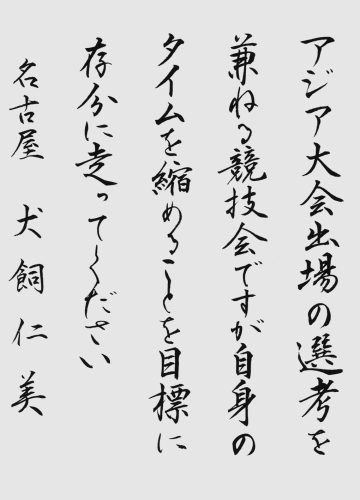 アジア大会出場の選考を
兼ねる競技会ですが自身の
タイムを縮めることを目標に
存分に走ってください
名古屋 犬飼仁美